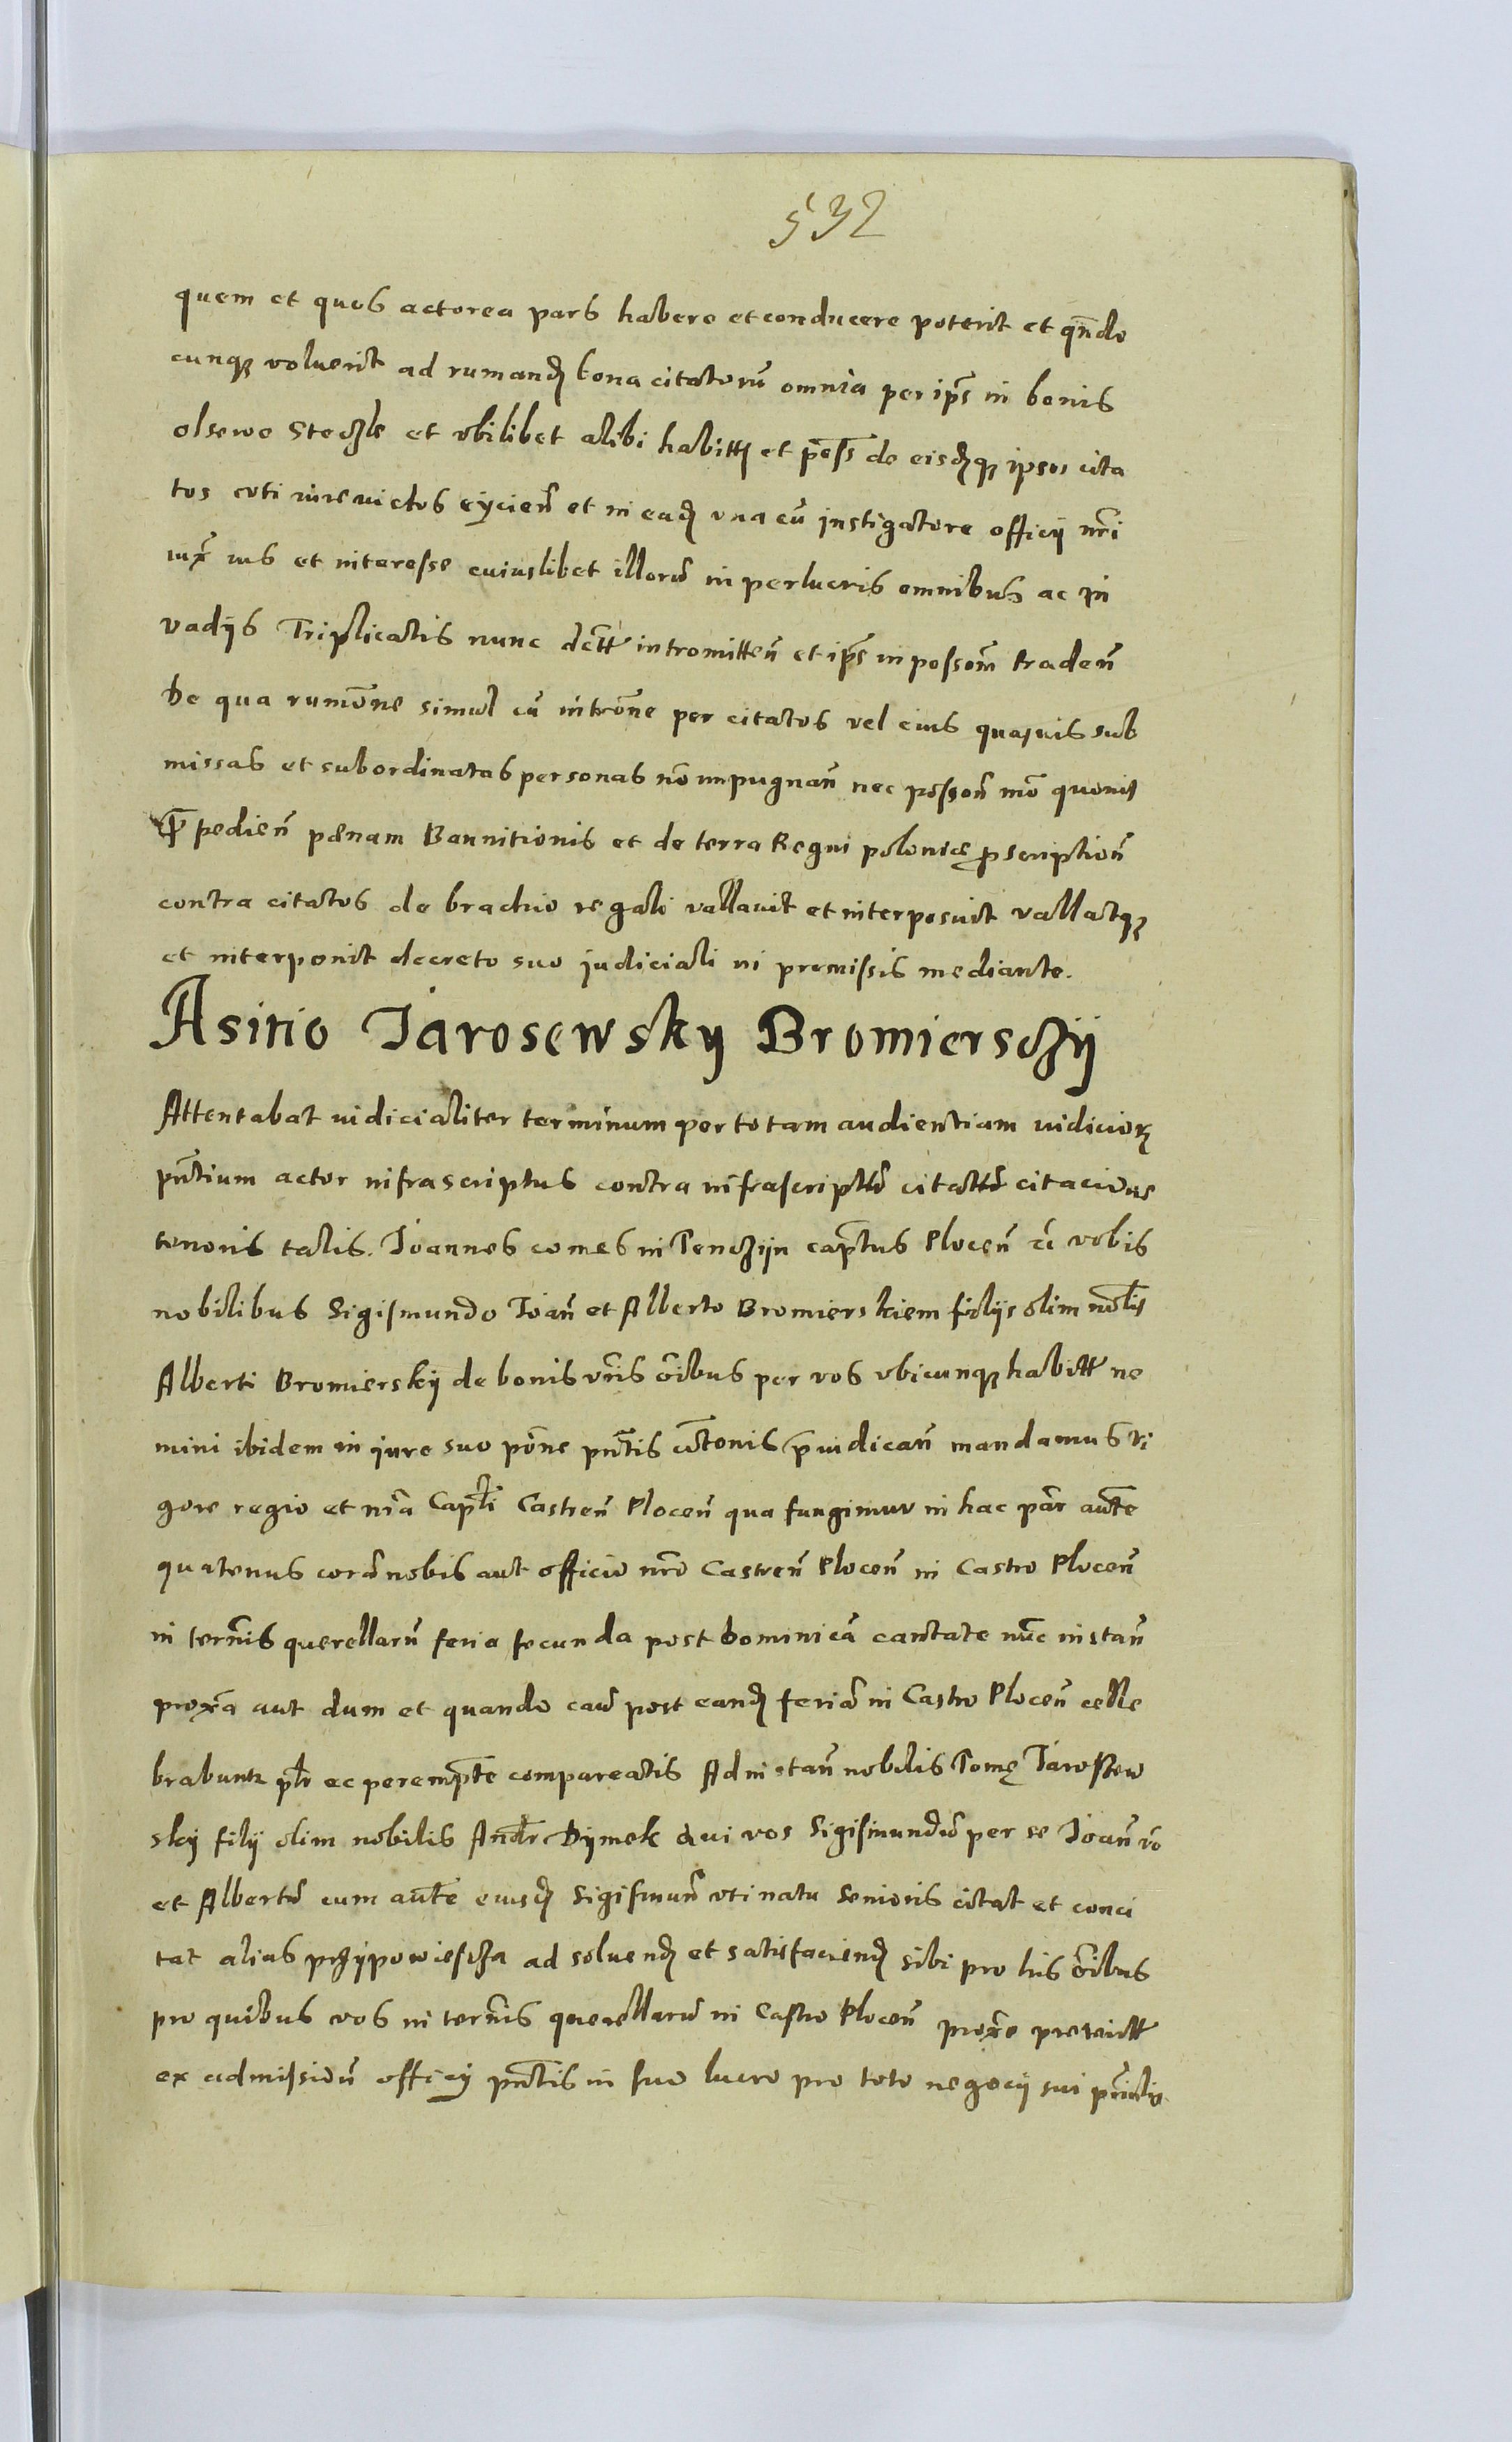 532
quem et quos actorea pars habere et conducere poterit et qn̄do
cunqꝫ voluerit ad rumanđ bona citatorū omnia per ip̄s in bonis
olsewo Steczle et vbilibet alibi habitt et p̄oss de eisđqꝫ ipsos cita
tos coti iure victos eÿcien̄ et in eađ vna cū instigatore officÿ nr̄i
iux̄ ius et interesse cuiuslibet illorū in perlucris omnibus ac in
vadÿs Triplicatis nunc dc̄tt intromitten̄ et ip̄s in possom̄ traden̄
De qua rumōne simul cū intrōne per citatos vel eius quasuis sub
missas et subordinatas personas nō impugnan̄ nec posson̄ mō quouis
p̄pedien̄ pænam Bannitionis et de terra Regni poloniæ ꝓscription̄
contra citatos de brachio regali vallauit et interposuit vallatqꝫ
et interponit decreto suo judiciali in premissis mediante.
Asitio Jarosewskÿ Bromiersczÿ
Attentabat iudicialiter terminum per totam audientiam iudicioꝝ
pn̄tium actor infrascriptus contra infrascriptū citattū citacionis
tenoris talis. Joannes comes in Tenczÿn cap̄tus Plocen̄ rc̄ vobis
nobilibus Sigismundo Joan̄ et Alberto Bromierskiem filÿs olim nob̄lis
Alberti Bromierskÿ de bonis vr̄is oībus per vos vbicunqꝫ habitt ne
mini ibidem in jure suo pōne pn̄tis c̄tonis p̄iudican̄ mandamus vi
gore regio et nr̄a Capt̄li Castren̄ Plocen̄ qua fungimur in hac par̄ auc̄te
quatenus corā nobis aut officio nr̄o Castren̄ Plocen̄ in Castro Plocen̄
in term̄is querellarū feria secunda post Dominicā cantate nūc instan̄
prox̄a aut dum et quando cau post eanđ feriā in Castro Plocen̄ celle
brabuntꝛ pt̄r ec perempt̄e compareatis Ad instan̄ nobilis Tomę Jarossew
skÿ filÿ olim nobilis Andr̄ Dÿmek qui vos Sigismundū per se Joan̄ vō
et Albertū cum auc̄te eiusđ Sigismun̄ vti natu senioris citat et conci
tat alias przÿpowiescza ad soluenđ et satisfacienđ sibi pro his oībus
pro quibus vos in term̄is querellarū in Castro Plocen̄ prox̄e preteritt
ex admission̄ officÿ pn̄tis in suo lucro pro toto negocÿ sui prin̄lis